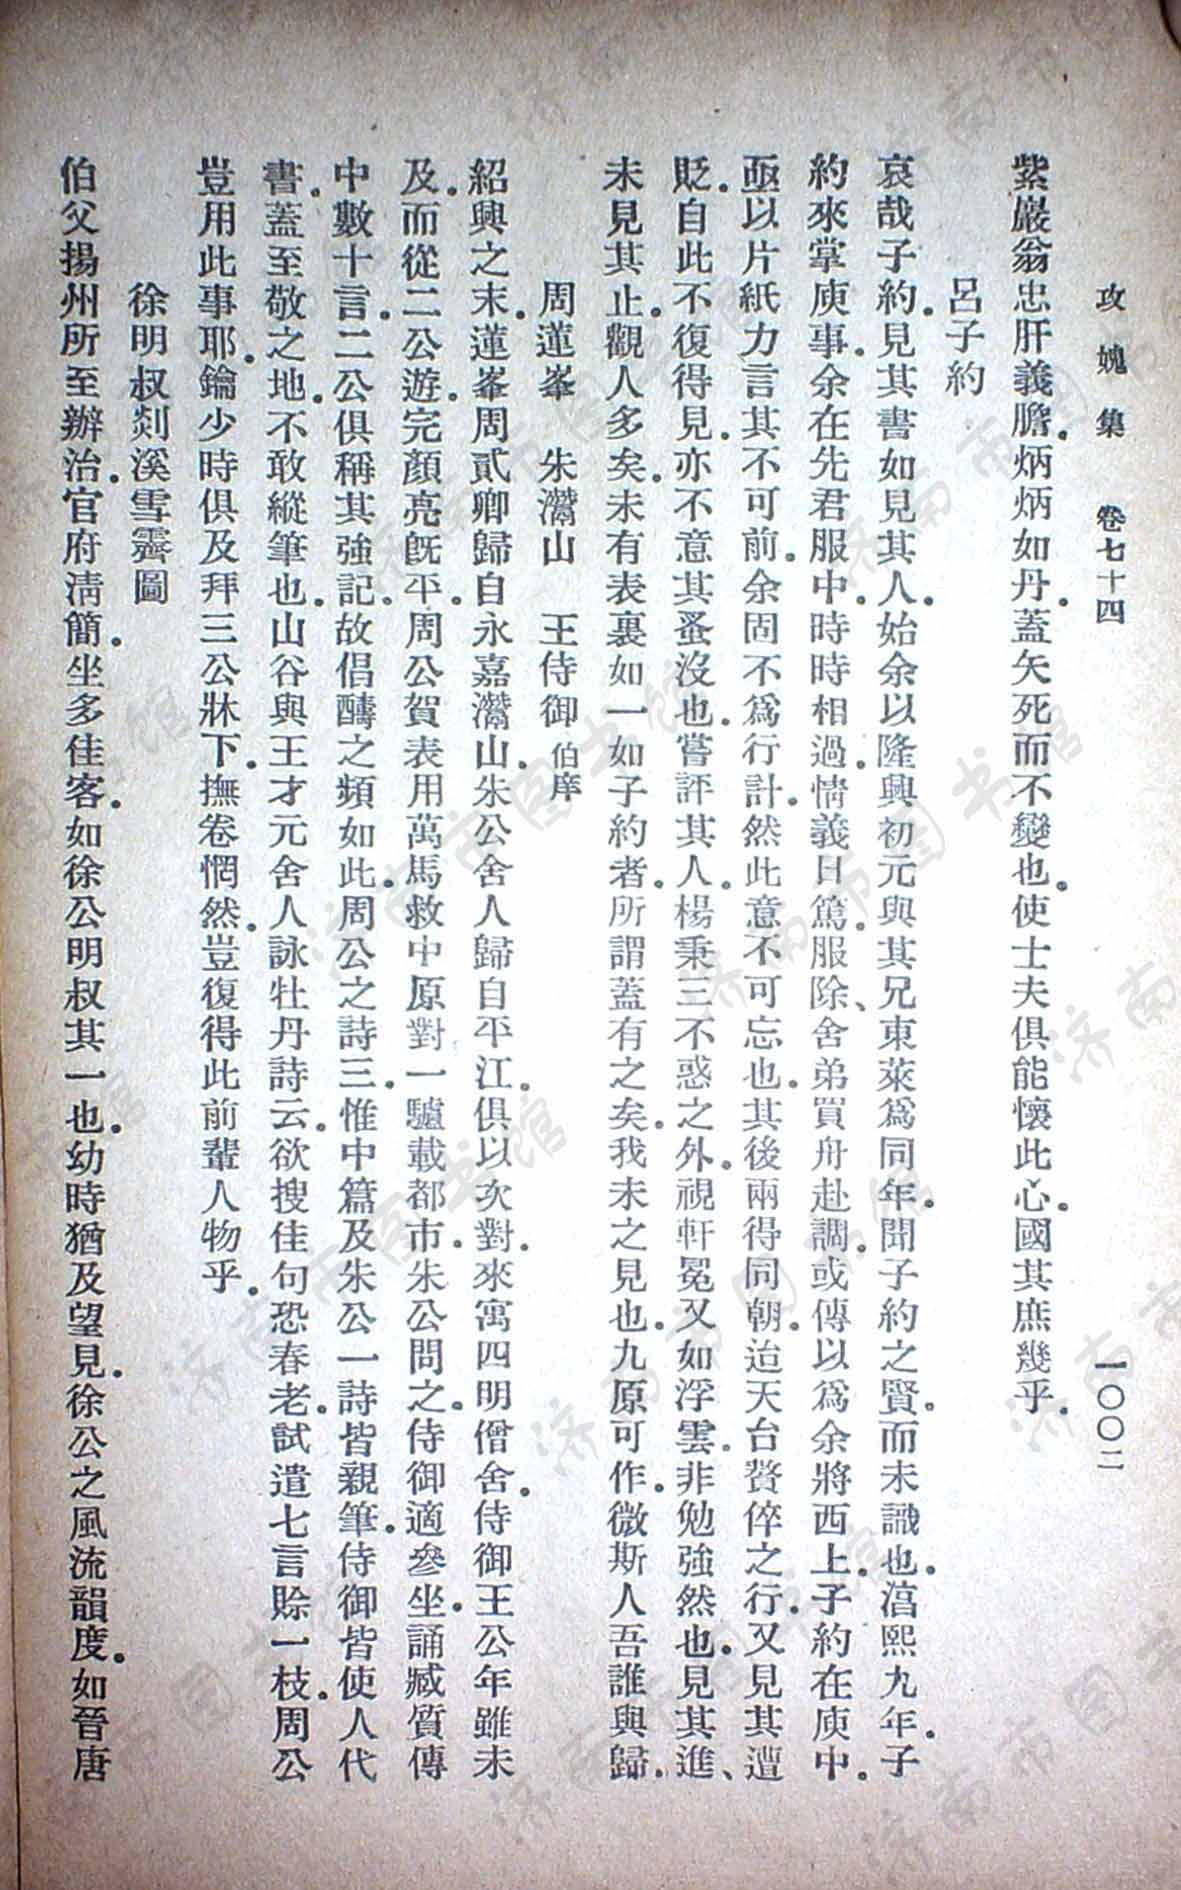 攻媿集　卷七十四　一〇〇二
紫巖翁忠肝義膽。炳炳如丹。蓋矢死而不變也。使士夫俱能懷此心。國其庶幾乎。
呂子約
哀哉子約。見其書如見其人。始余以隆興初元與其兄東萊爲同年。聞子約之賢。而未識也。淳熙九年。子
約來掌庾事。余在先君服中。時時相過。情義日篤。服除、舍弟買舟赴調。或傳以爲余將西上。子約在庾中。
亟以片紙力言其不可前。余固不爲行計。然此意不可忘也。其後兩得同朝。迨天台贅倅之行。又見其遭
貶。自此不復得見。亦不意其蚤沒也。嘗評其人。楊秉三不惑之外。視軒冕又如浮雲。非勉強然也。見其進、
未見其止。觀人多矣。未有表裏如一如子約者。所謂蓋有之矣。我未之見也。九原可作。微斯人吾誰與歸。
周蓮峯　朱灊山　王侍御伯庠
紹興之末。蓮峯周貳卿歸自永嘉。灊山朱公舍人歸自平江。俱以次對。來寓四明僧舍。侍御王公年雖未
及。而從二公遊。完顏亮旣平。周公賀表用萬馬救中原對一驢載都市。朱公問之。侍御適參坐。誦臧質傳
中數十言。二公俱稱其強記。故倡醻之頻如此。周公之詩三。惟中篇及朱公一詩皆親筆。侍御皆使人代
書。蓋至敬之地。不敢縱筆也。山谷與王才元舍人詠牡丹詩云。欲搜佳句恐春老。試遣七言賒一枝。周公
豈用此事耶。鑰少時俱及拜三公牀下。撫卷惘然。豈復得此前輩人物乎。
徐明叔剡溪雪霽圖
伯父揚州所至辦治。官府淸簡。坐多佳客。如徐公明叔其一也。幼時猶及望見。徐公之風流韻度。如晉唐